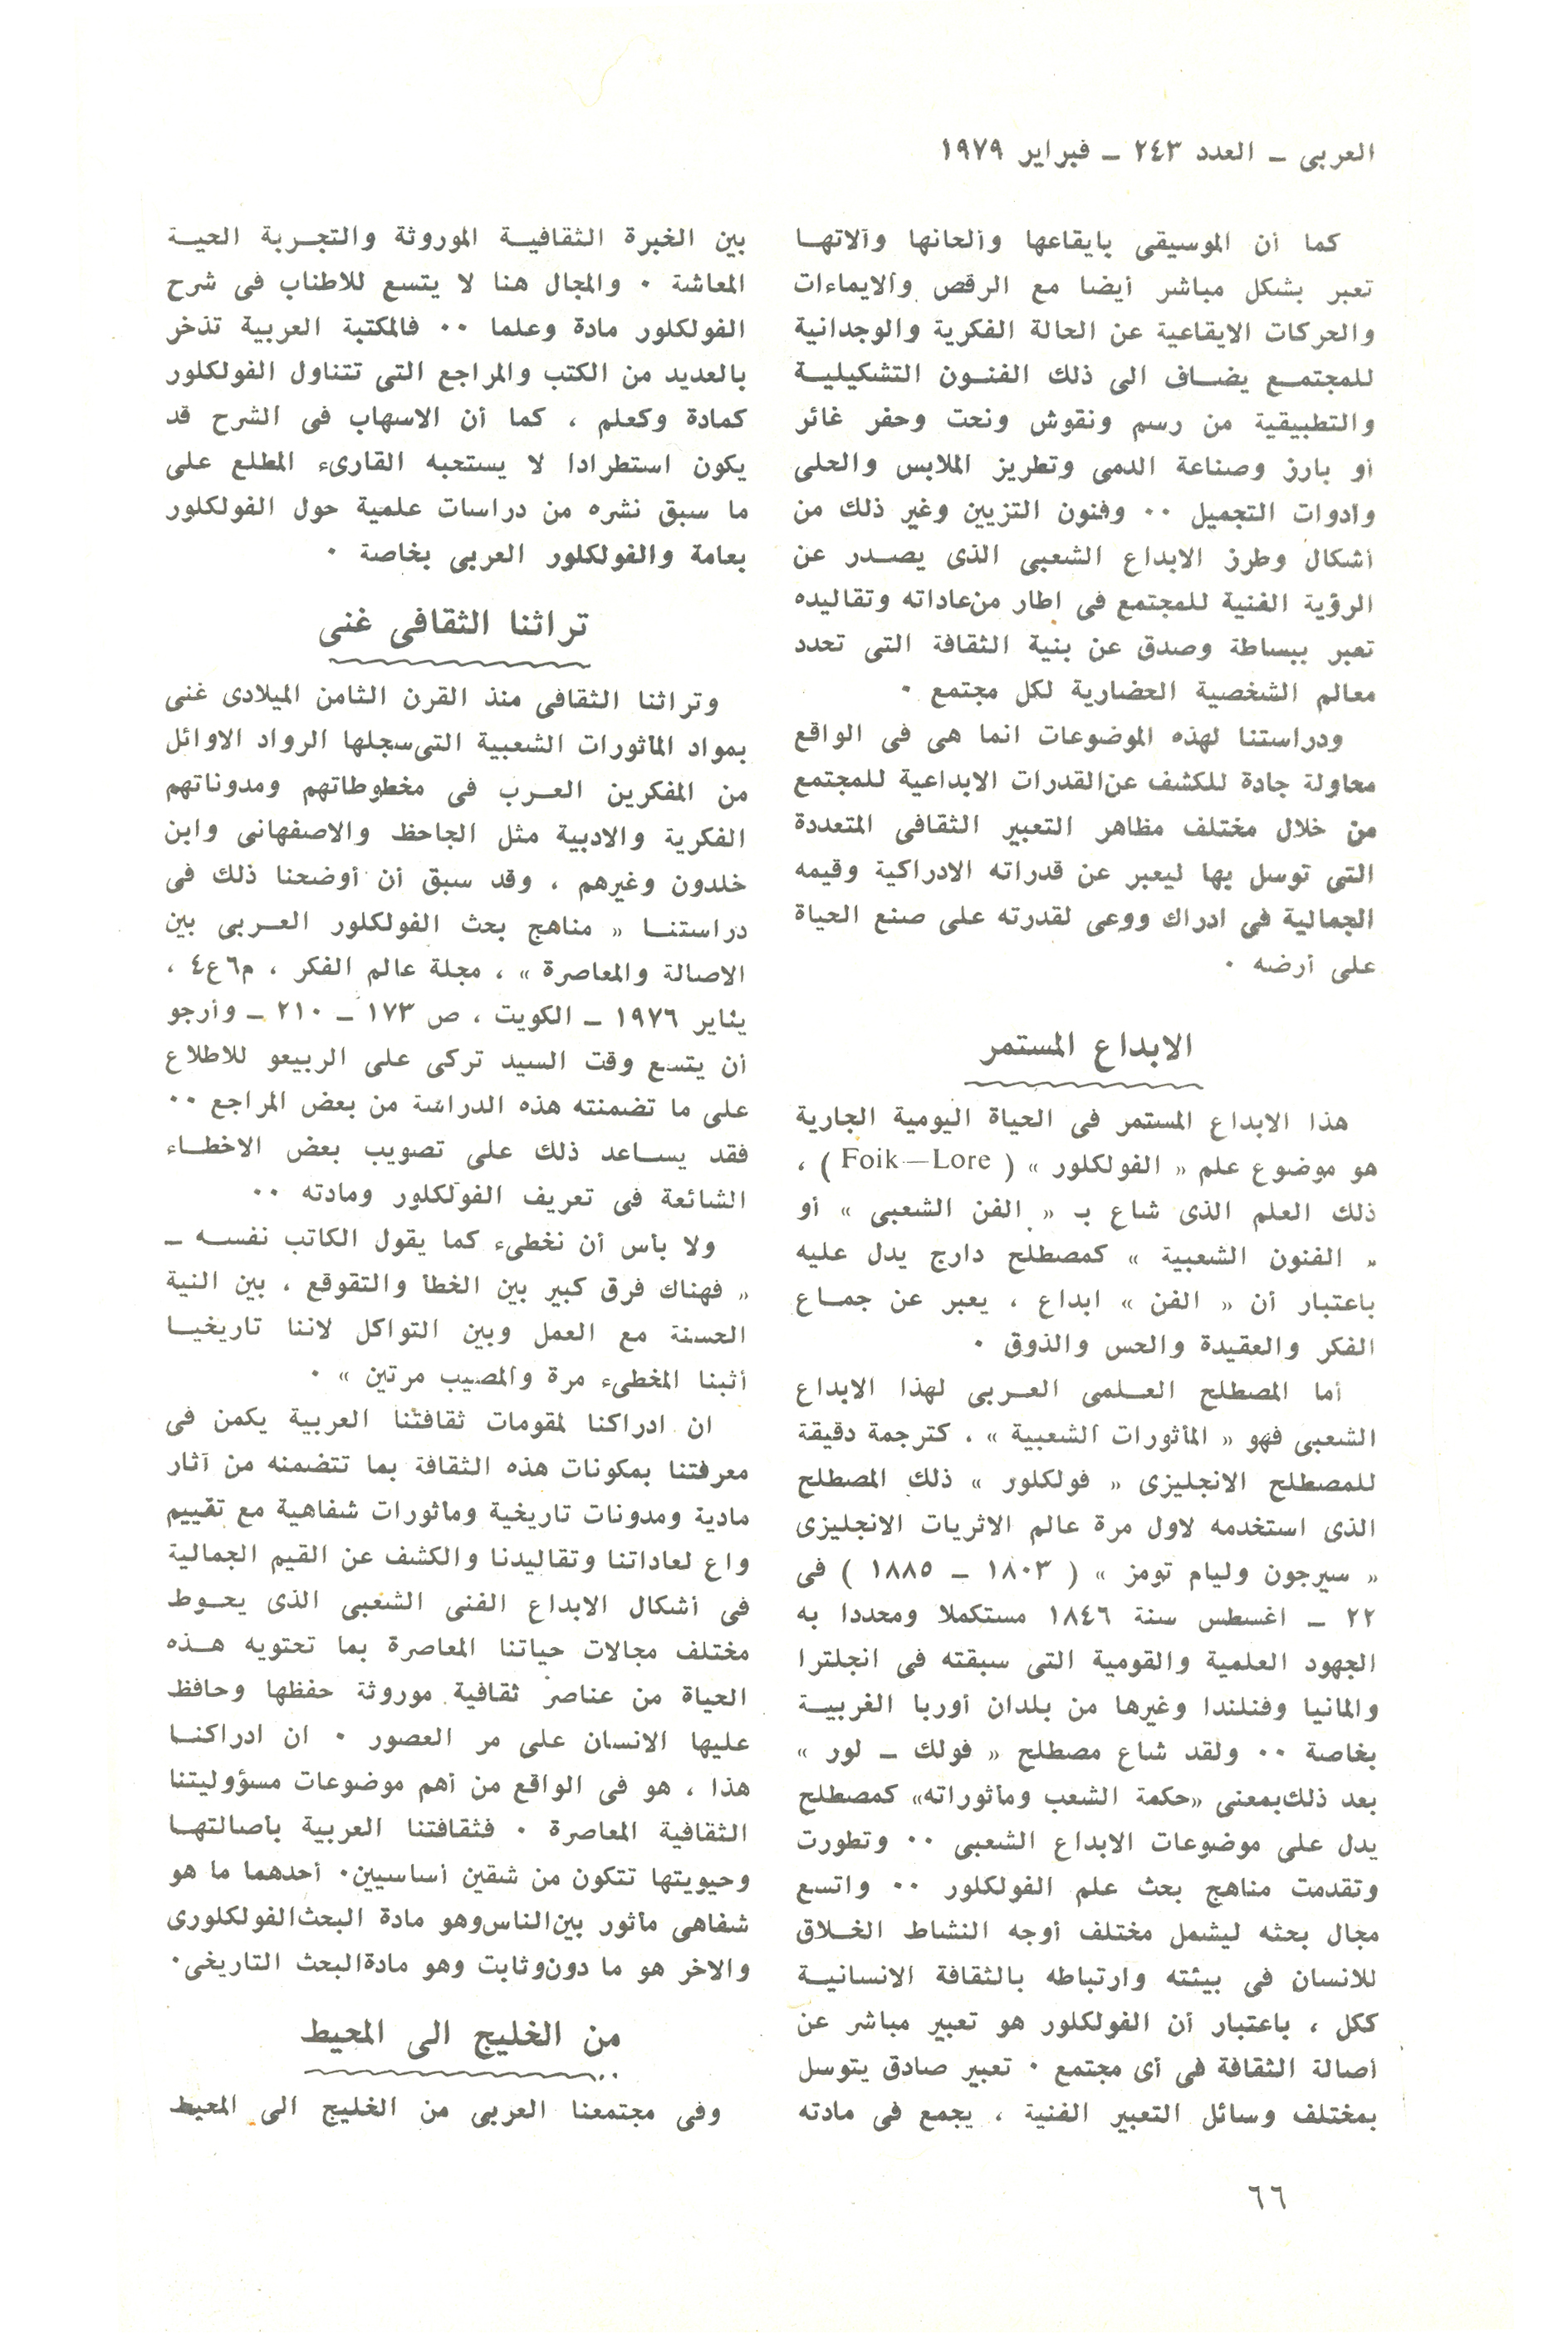 العربى ـ العدد ٢٤٣ ـ فبراير ١٩٧٩
كما أن الموسيقى بايقاعها وألحانها وآلاتهـا
تعبر بشكل مباشر أيضا مع الرقص والايماءات
والحركات الايقاعية عن الحالة الفكرية والوجدانية
للمجتمـع يضـاف الى ذلك الفنـون التشكيليـة
والتطبيقية من رسم ونقوش ونحت وحفر غائر
أو بارز وصناعة الدمى وتطريز الملابس والحلى
وادوات التجميل ٠٠ وفنون التزيين وغير ذلك من
أشكال وطرز الابداع الشعبى الذى يصـدر عن
الرؤية الفنية للمجتمع فى اطار من عاداته وتقاليده
تعبر ببساطة وصدق عن بنية الثقافة التى تحدد
معالم الشخصية الحضارية لكل مجتمع ٠
ودراستنا لهذه الموضوعات انما هى فى الواقع
محاولة جادة للكشف عن القدرات الابداعية للمجتمع
من خلال مختلف مظاهر التعبير الثقافى المتعددة
التى توسل بها ليعبر عن قدراته الادراكية وقيمه
الجمالية فى ادراك ووعى لقدرته على صنع الحياة
على أرضه ٠
الابداع المستمر
هذا الابداع المستمر فى الحياة اليومية الجارية
هو موضوع علم « الفولكلور » ( Foik—Lore ) ،
ذلك العلم الذى شاع بـ « الفن الشعبى » أو
« الفنون الشعبية » كمصطلح دارج يدل عليه
باعتبار أن « الفن » ابداع ، يعبر عن جمـاع
الفكر والعقيدة والحس والذوق ٠
أما المصطلح العـلمى العـربى لهذا الابداع
الشعبى فهو « المأثورات الشعبية » ، كترجمة دقيقة
للمصطلح الانجليزى « فولكلور » ذلك المصطلح
الذى استخدمه لاول مرة عالم الاثريات الانجليزى
« سيرجون وليام تومز » ( ١٨٠٣ ـ ١٨٨٥ ) فى
٢٢ ـ اغسطس سنة ١٨٤٦ مستكملا ومحددا به
الجهود العلمية والقومية التى سبقته فى انجلترا
والمانيا وفنلندا وغيرها من بلدان أوربا الغربيـة
بخاصة ٠٠ ولقد شاع مصطلح « فولك ـ لور »
بعد ذلك بمعنى «حكمة الشعب ومأثوراته» كمصطلح
يدل على موضوعات الابداع الشعبى ٠٠ وتطورت
وتقدمت مناهج بحث علم الفولكلور ٠٠ واتسع
مجال بحثه ليشمل مختلف أوجه النشاط الخـلاق
للانسان فى بيئته وارتباطه بالثقافة الانسانيـة
ككل ، باعتبار أن الفولكلور هو تعبير مباشر عن
أصالة الثقافة فى أى مجتمع ٠ تعبير صادق يتوسل
بمختلف وسائل التعبير الفنية ، يجمع فى مادته
بين الخبرة الثقافيـة الموروثة والتجـربة الحيـة
المعاشة ٠ والمجال هنا لا يتسع للاطناب فى شرح
الفولكلور مادة وعلما ٠٠ فالمكتبة العربية تذخر
بالعديد من الكتب والمراجع التى تتناول الفولكلور
كمادة وكعلم ، كما أن الاسهاب فى الشرح قد
يكون استطرادا لا يستحبه القارىء المطلع على
ما سبق نشره من دراسات علمية حول الفولكلور
بعامة والفولكلور العربى بخاصة ٠
تراثنا الثقافى غنى
وتراثنا الثقافى منذ القرن الثامن الميلادى غنى
بمواد المأثورات الشعبية التى سجلها الرواد الاوائل
من المفكرين العـرب فى مخطوطاتهم ومدوناتهم
الفكرية والادبية مثل الجاحظ والاصفهانى وابن
خلدون وغيرهم ، وقد سبق أن أوضحنا ذلك فى
دراستنـا « مناهج بحث الفولكلور العـربى بين
الاصالة والمعاصرة » ، مجلة عالم الفكر ، م٦ ع٤ ،
يناير ١٩٧٦ ـ الكويت ، ص ١٧٣ ـ ٢١٠ ـ وأرجو
أن يتسع وقت السيد تركى على الربيعو للاطلاع
على ما تضمنته هذه الدراسة من بعض المراجع ٠٠
فقد يسـاعد ذلك على تصويب بعض الاخطـاء
الشائعة فى تعريف الفولكلور ومادته ٠٠
ولا بأس أن نخطىء كما يقول الكاتب نفسـه ـ
« فهناك فرق كبير بين الخطأ والتقوقع ، بين النية
الحسنة مع العمل وبين التواكل لاننا تاريخيـا
أثبنا المخطىء مرة والمصيب مرتين » ٠
ان ادراكنا لمقومات ثقافتنا العربية يكمن فى
معرفتنا بمكونات هذه الثقافة بما تتضمنه من آثار
مادية ومدونات تاريخية ومأثورات شفاهية مع تقييم
واع لعاداتنا وتقاليدنا والكشف عن القيم الجمالية
فى أشكال الابداع الفنى الشعبى الذى يحـوط
مختلف مجالات حياتنا المعاصرة بما تحتويه هـذه
الحياة من عناصر ثقافية موروثة حفظها وحافظ
عليها الانسان على مر العصور ٠ ان ادراكنـا
هذا ، هو فى الواقع من أهم موضوعات مسؤوليتنا
الثقافية المعاصرة ٠ فثقافتنا العربية بأصالتهـا
وحيويتها تتكون من شقين أساسيين٠ أحدهما ما هو
شفاهى مأثور بين الناس وهو مادة البحث الفولكلورى
والاخر هو ما دون وثابت وهو مادة البحث التاريخى٠
من الخليج الى المحيط
وفى مجتمعنا العربى من الخليج الى المحيط
٦٦